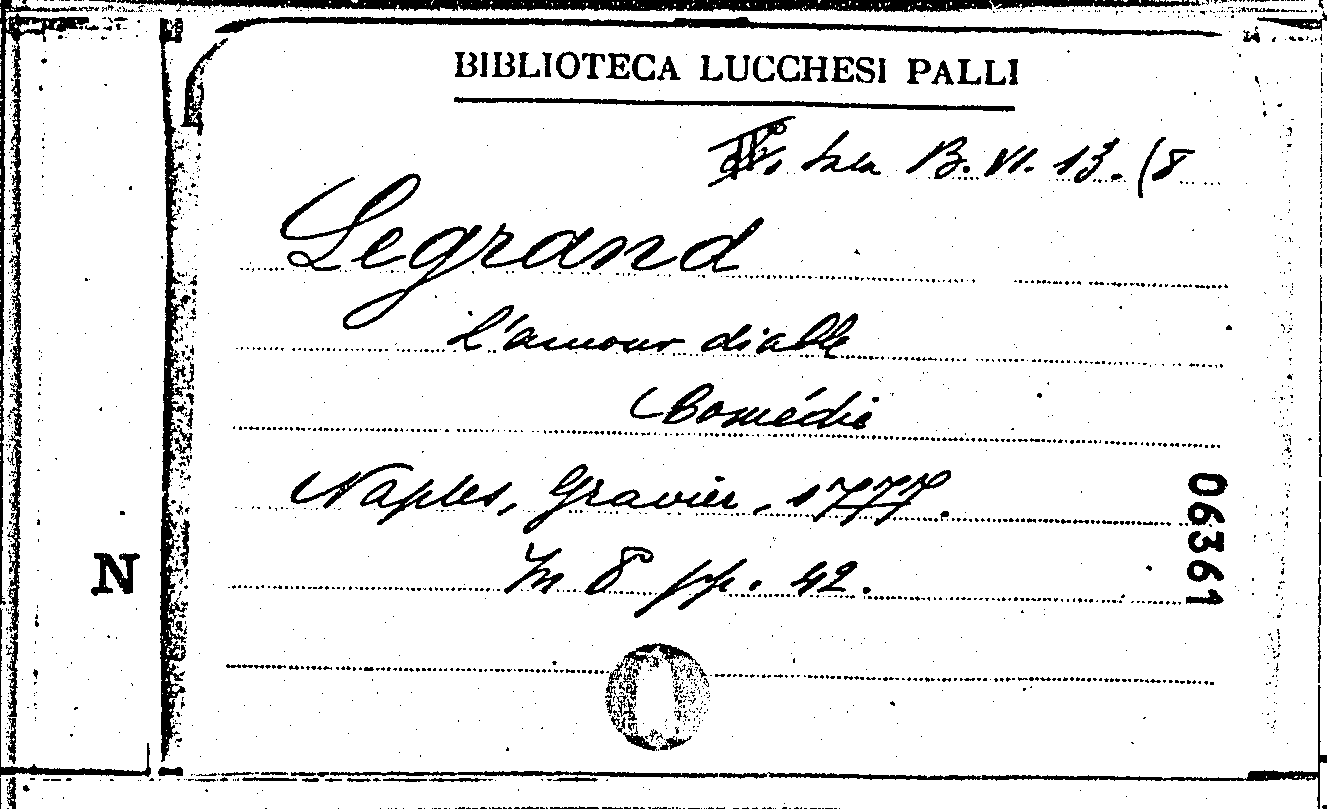 BIBLIOTECA LUCCHESI PALLI
Sala B. VI. 13. (8
Legrand
L'amour diable
Comédie
Naples, Gravier, 1777.
In 8 pp. 42.
06361
N